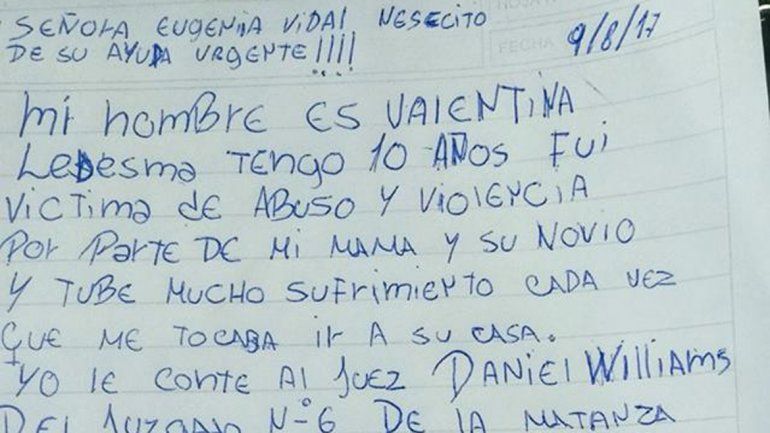 SEÑOLA EUGENIA VIDAL NESECITO
DE SU AYUDA URGENTE!!!!
FECHA 9/8/17
MI NOMBRE ES VALENTINA
LEDESMA TENGO 10 AÑOS FUI
VICTIMA DE ABUSO Y VIOLENCIA
POR PARTE DE MI MAMA Y SU NOVIO
Y TUBE MUCHO SUFRIMIENTO CADA VEZ
QUE ME TOCABA IR A SU CASA.
YO LE CONTE AL JUEZ DANIEL WILLIAMS
DEL JUZGADO Nº6 DE LA MATANZA